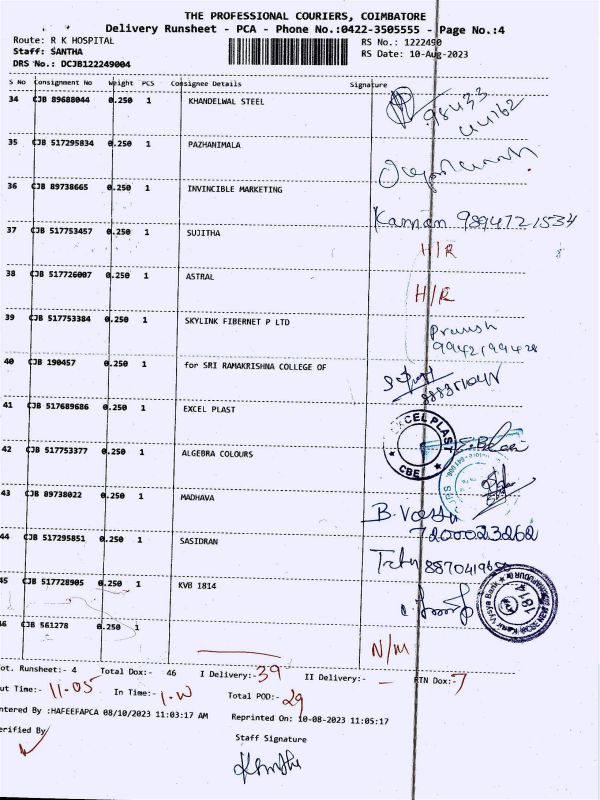 THE PROFESSIONAL COURIERS, COIMBATORE
Delivery Runsheet - PCA - Phone No.:0422-3505555 - Page No.:4
Route: R K HOSPITAL RS No.: 1222490
Staff: SANTHA RS Date: 10-Aug-2023
DRS No.: DCJB122249004
S No Consignment No Weight PCS Consignee Details Signature
34 CJB 89688044 0.250 1 KHANDELWAL STEEL 98433
44162
35 CJB 517295834 0.250 1 PAZHANIMALA
36 CJB 89738665 0.250 1 INVINCIBLE MARKETING
Kannan 9894721534
37 CJB 517753457 0.250 1 SUJITHA H/R
38 CJB 517726007 0.250 1 ASTRAL H/R
39 CJB 517753384 0.250 1 SKYLINK FIBERNET P LTD
40 CJB 190457 0.250 1 for SRI RAMAKRISHNA COLLEGE OF
41 CJB 517689686 0.250 1 EXCEL PLAST
EXCEL PLAST
CBE
42 CJB 517753377 0.250 1 ALGEBRA COLOURS
43 CJB 89738022 0.250 1 MADHAVA
B. Vassu
7200023262
44 CJB 517295851 0.250 1 SASIDRAN
45 CJB 517728905 0.250 1 KVB 1814
1814
46 CJB 561278 0.250 1 N/M
Tot. Runsheet:- 4 Total Dox:- 46 I Delivery:- 39 II Delivery:- - RTN Dox:- 7
Out Time:- 11.05 In Time:- Total POD:- 29
Entered By :HAFEEFAPCA 08/10/2023 11:03:17 AM Reprinted On: 10-08-2023 11:05:17
Verified By Staff Signature